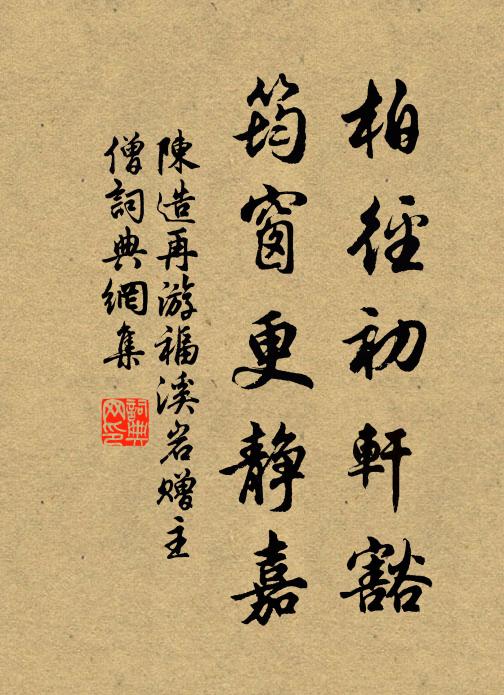 柏徑初軒豁
筠窗更静嘉
陳造再游福溪岩赠主
僧詞典網集
詞典网印